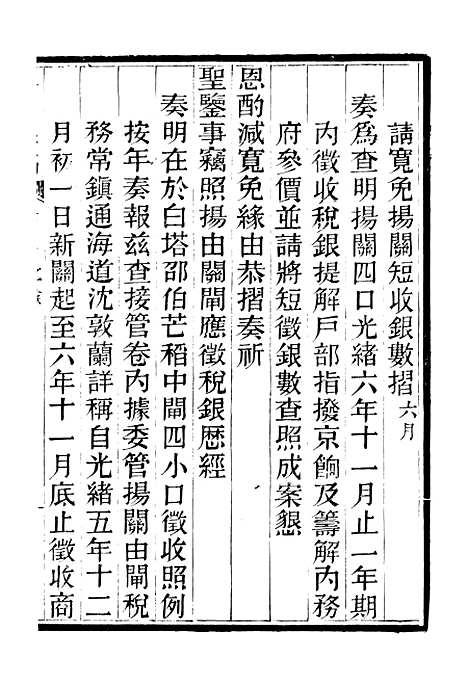 請寬免揚關短收銀數摺六月
奏爲查明揚關四口光緒六年十一月止一年期
內徵收稅銀提解戶部指撥京餉及籌解內務
府參價並請將短徵銀數查照成案懇
恩酌減寬免緣由恭摺奏祈
聖鑒事竊照揚由關閘應徵稅銀歷經
奏明在於白塔邵伯芒稻中閘四小口徵收照例
按年奏報茲查接管卷內據委管揚關由閘稅
務常鎮通海道沈敦蘭詳稱自光緒五年十二
月初一日新關起至六年十一月底止徵收商